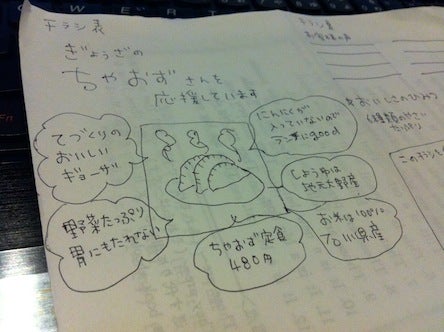 チラシ表
ぎょうざの
ちゃおずさんを
応援しています
てづくりの
おいしい
ギョーザ
にんにくが
入っていないので
ランチにgood
しょうゆは
地元大野産
野菜たっぷり
胃にもたれない
ちゃおず定食
480円
お米は100%
石川県産
チラシ裏
お客様の声
おいしさのひみつ
このチラシ